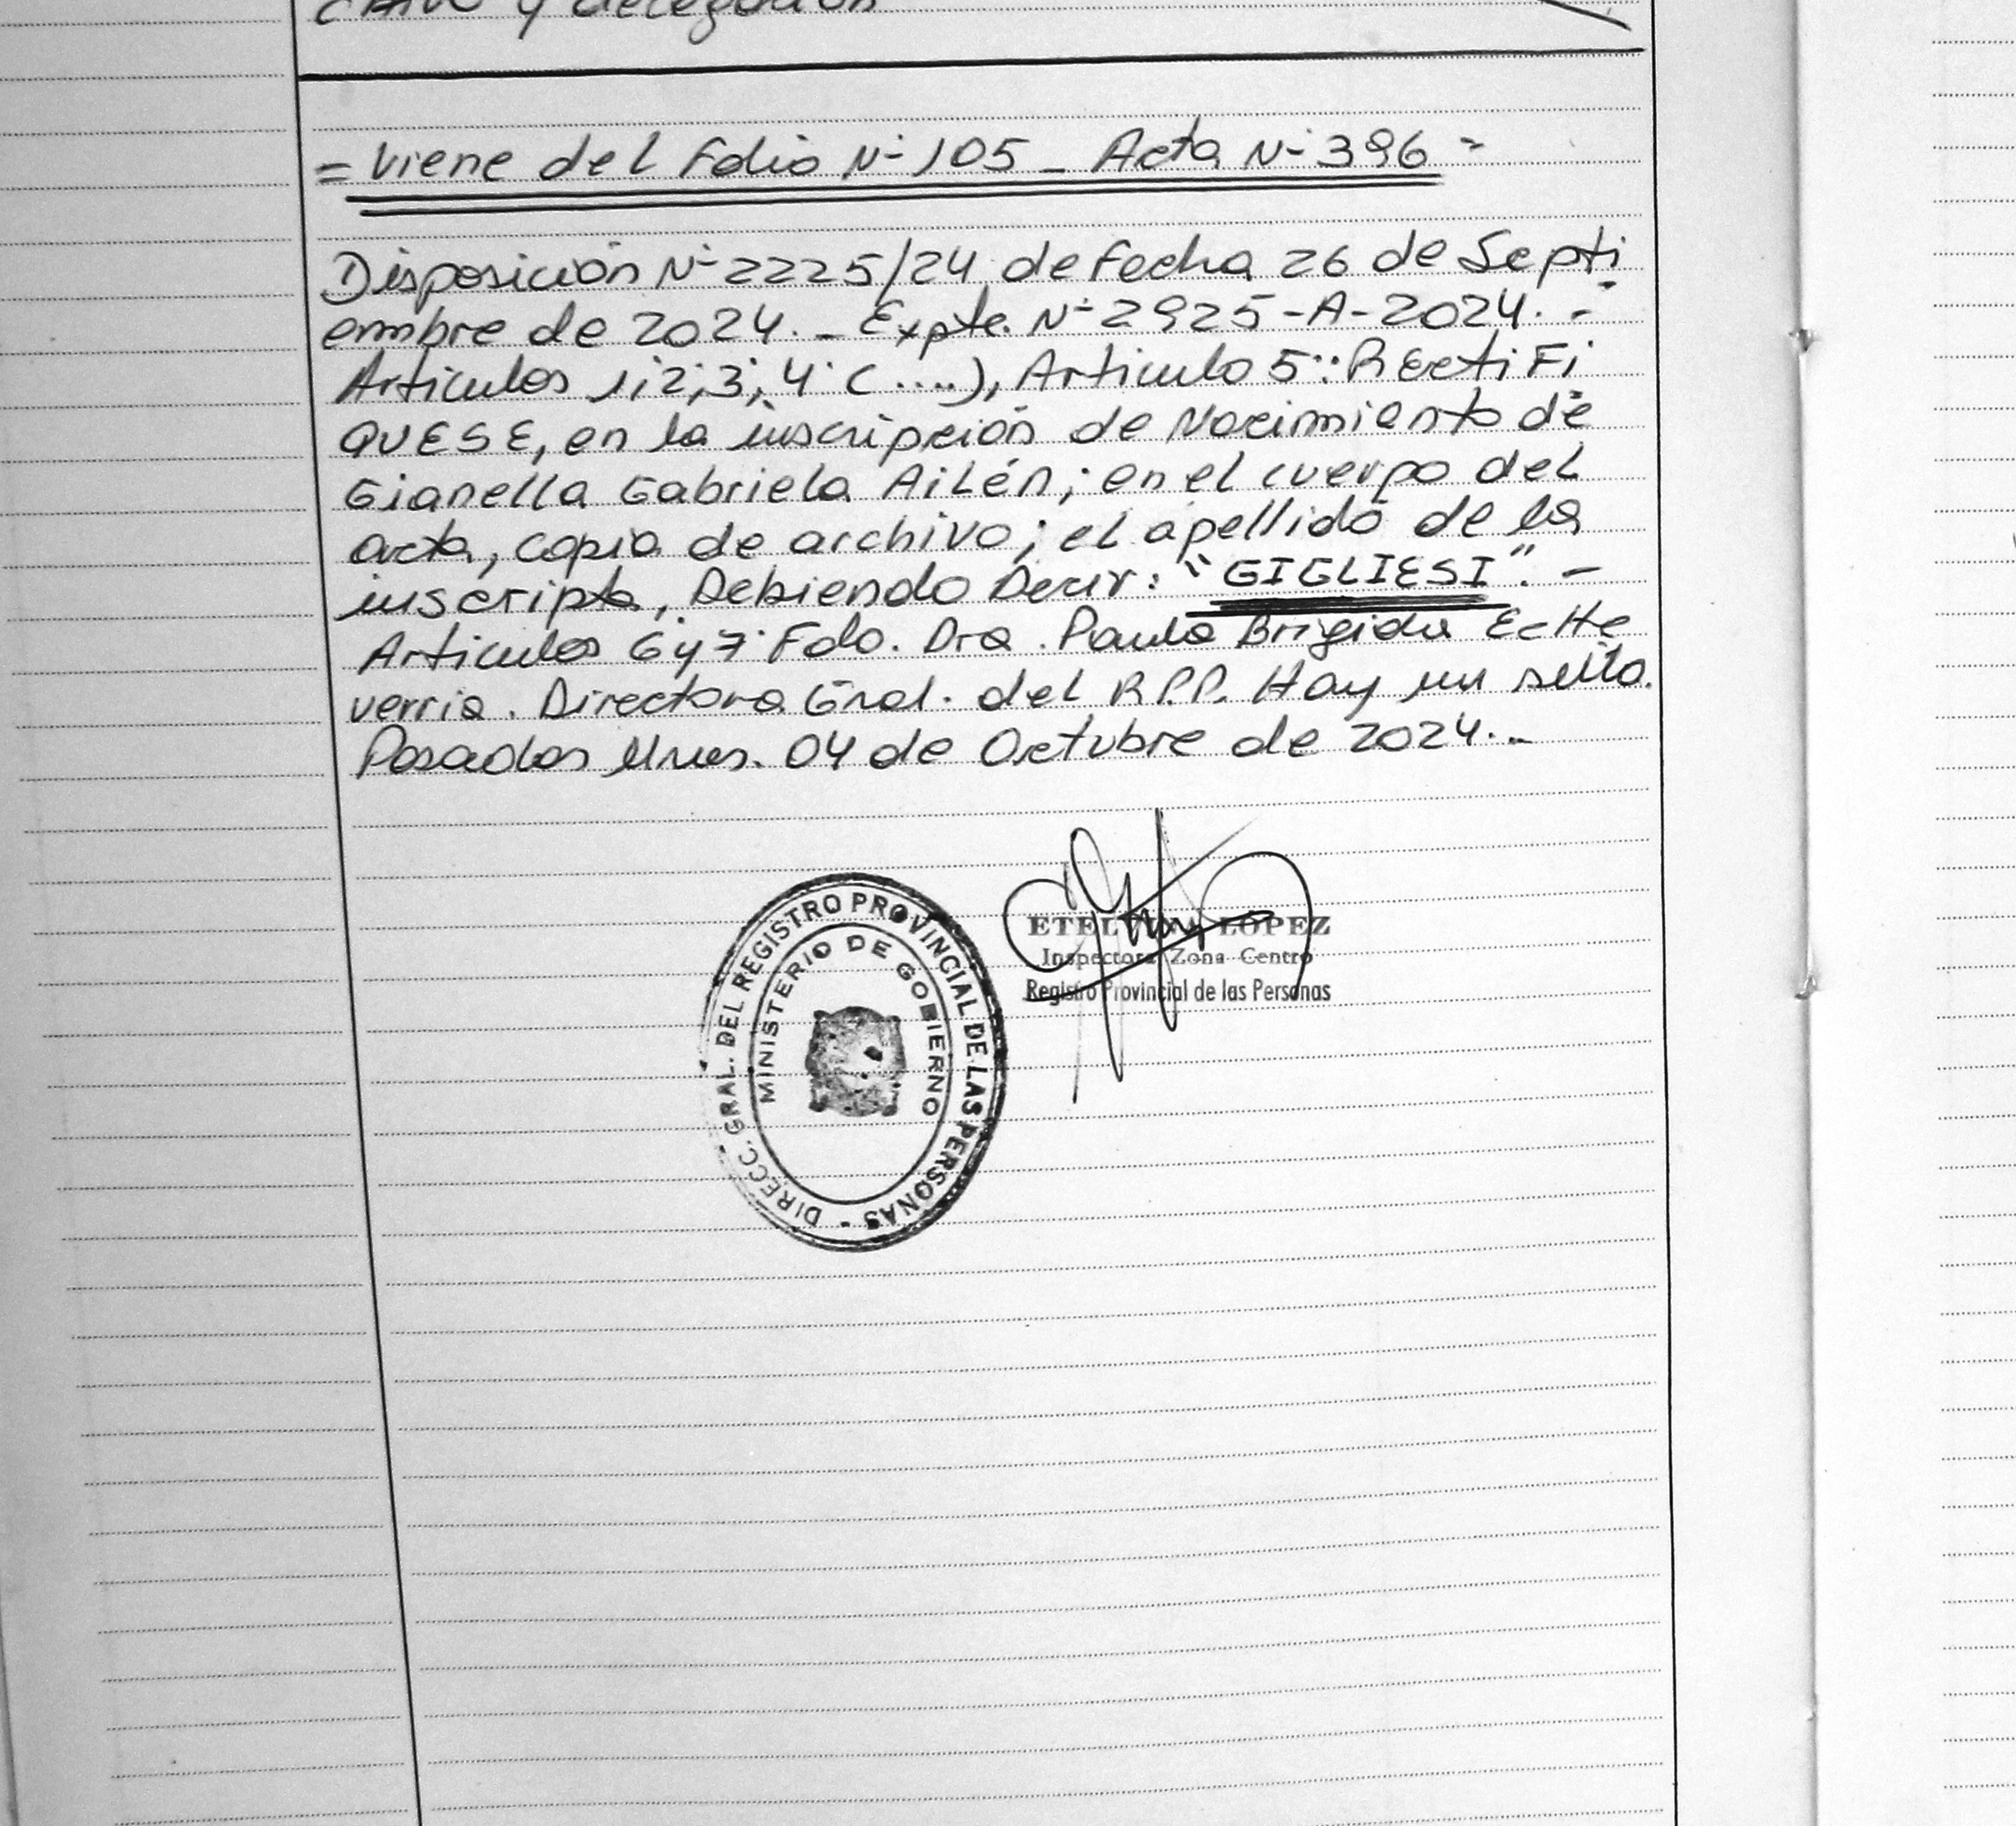 y delegación
= Viene del Folio N° 105 _ Acta N° 396 =
Disposición N° 2225/24 de Fecha 26 de Septi
embre de 2024. _ Expte. N° 2925-A-2024. -
Articulos 1; 2; 3; 4° (....), Articulo 5°: REctiFi
QUESE, en la inscripción de Nacimiento de
Gianella Gabriela Ailén; en el cuerpo del
acta, copia de archivo; el apellido de la
inscripta, Debiendo Decir: "GIGLIESI". -
Articulos 6 y 7° Fdo. Dra. Paula Brigida EcHe
verria. Directora Gral. del R.P.P. Hay un sello.
Posadas Mnes. 04 de Octubre de 2024._
DIRECC. GRAL. DEL REGISTRO PROVINCIAL DE LAS PERSONAS -
MINISTERIO DE GOBIERNO
ETELVINA LOPEZ
Inspectora Zona Centro
Registro Provincial de las Personas